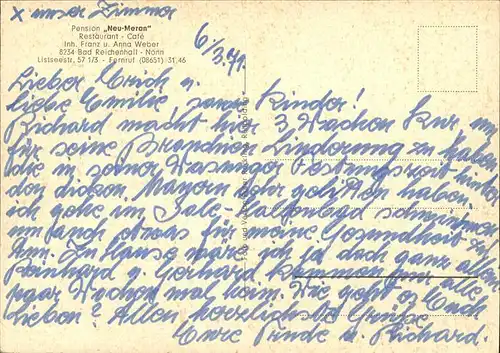 x unser Zimmer
Pension „Neu-Meran"
Restaurant - Café
Inh. Franz u. Anna Weber
8234 Bad Reichenhall - Nonn
Listseestr. 57 1/3 - Fernruf (08651) 31 46
6/3.71.
Lieber Erich u.
liebe Emilie, samt Kinder!
Richard macht hier 3 Wochen Kur um
für seine Bronchien Linderung zu haben
die in seiner Festungszeit hinter
den dicken Mauern sehr gelitten haben,
ich gehe im Sole-Hallenbad schwimmen
um auch etwas für meine Gesundheit zu
tun. Zu Hause wäre ich ja doch ganz allein
Reinhard u. Gerhard kommen nur alle
paar Wochen mal heim. Wie geht es Euch
Lieben? Allen herzliche Grüße
Eure u. Richard.